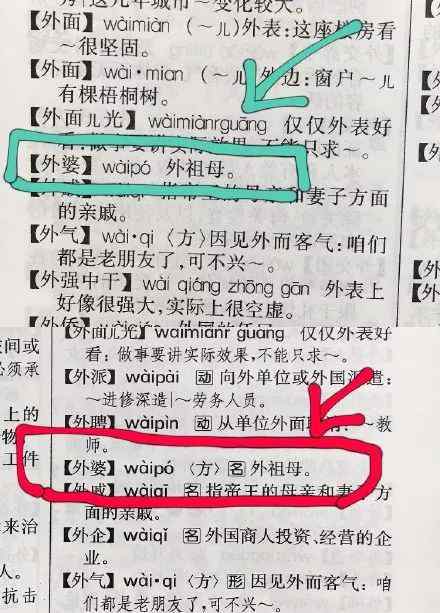 这几年城市～变化较大。
【外面】wàimiàn（～儿）外表：这座楼房看
～很坚固。
【外面】wài·mian（～儿）外边：窗户～儿
有棵梧桐树。
【外面儿光】wàimiànrguāng 仅仅外表好
看：做事要讲实际效果，不能只求～。
【外婆】wàipó 外祖母。
【外戚】指帝王的母亲和妻子方面
的亲戚。
【外气】wài·qi〈方〉因见外而客气：咱们
都是老朋友了，可不兴～。
【外强中干】wài qiáng zhōng gān 外表上
好像很强大，实际上很空虚。
【外侨】
【外面儿光】wàimiànr guāng 仅仅外表好
看：做事要讲实际效果，不能只求～。
【外派】wàipài 动 向外单位或外国派遣：
～进修深造｜～劳务人员。
【外聘】wàipìn 动 从单位外面聘：～教
师。
【外婆】wàipó〈方〉名 外祖母。
【外戚】wàiqī 名 指帝王的母亲和妻子方
面的亲戚。
【外企】wàiqǐ 名 外国商人投资、经营的企
业。
【外气】wài·qi〈方〉形 因见外而客气：咱
们都是老朋友了，可不兴～。
间或
必须承
上的
物
工件
来治
人。
抗击